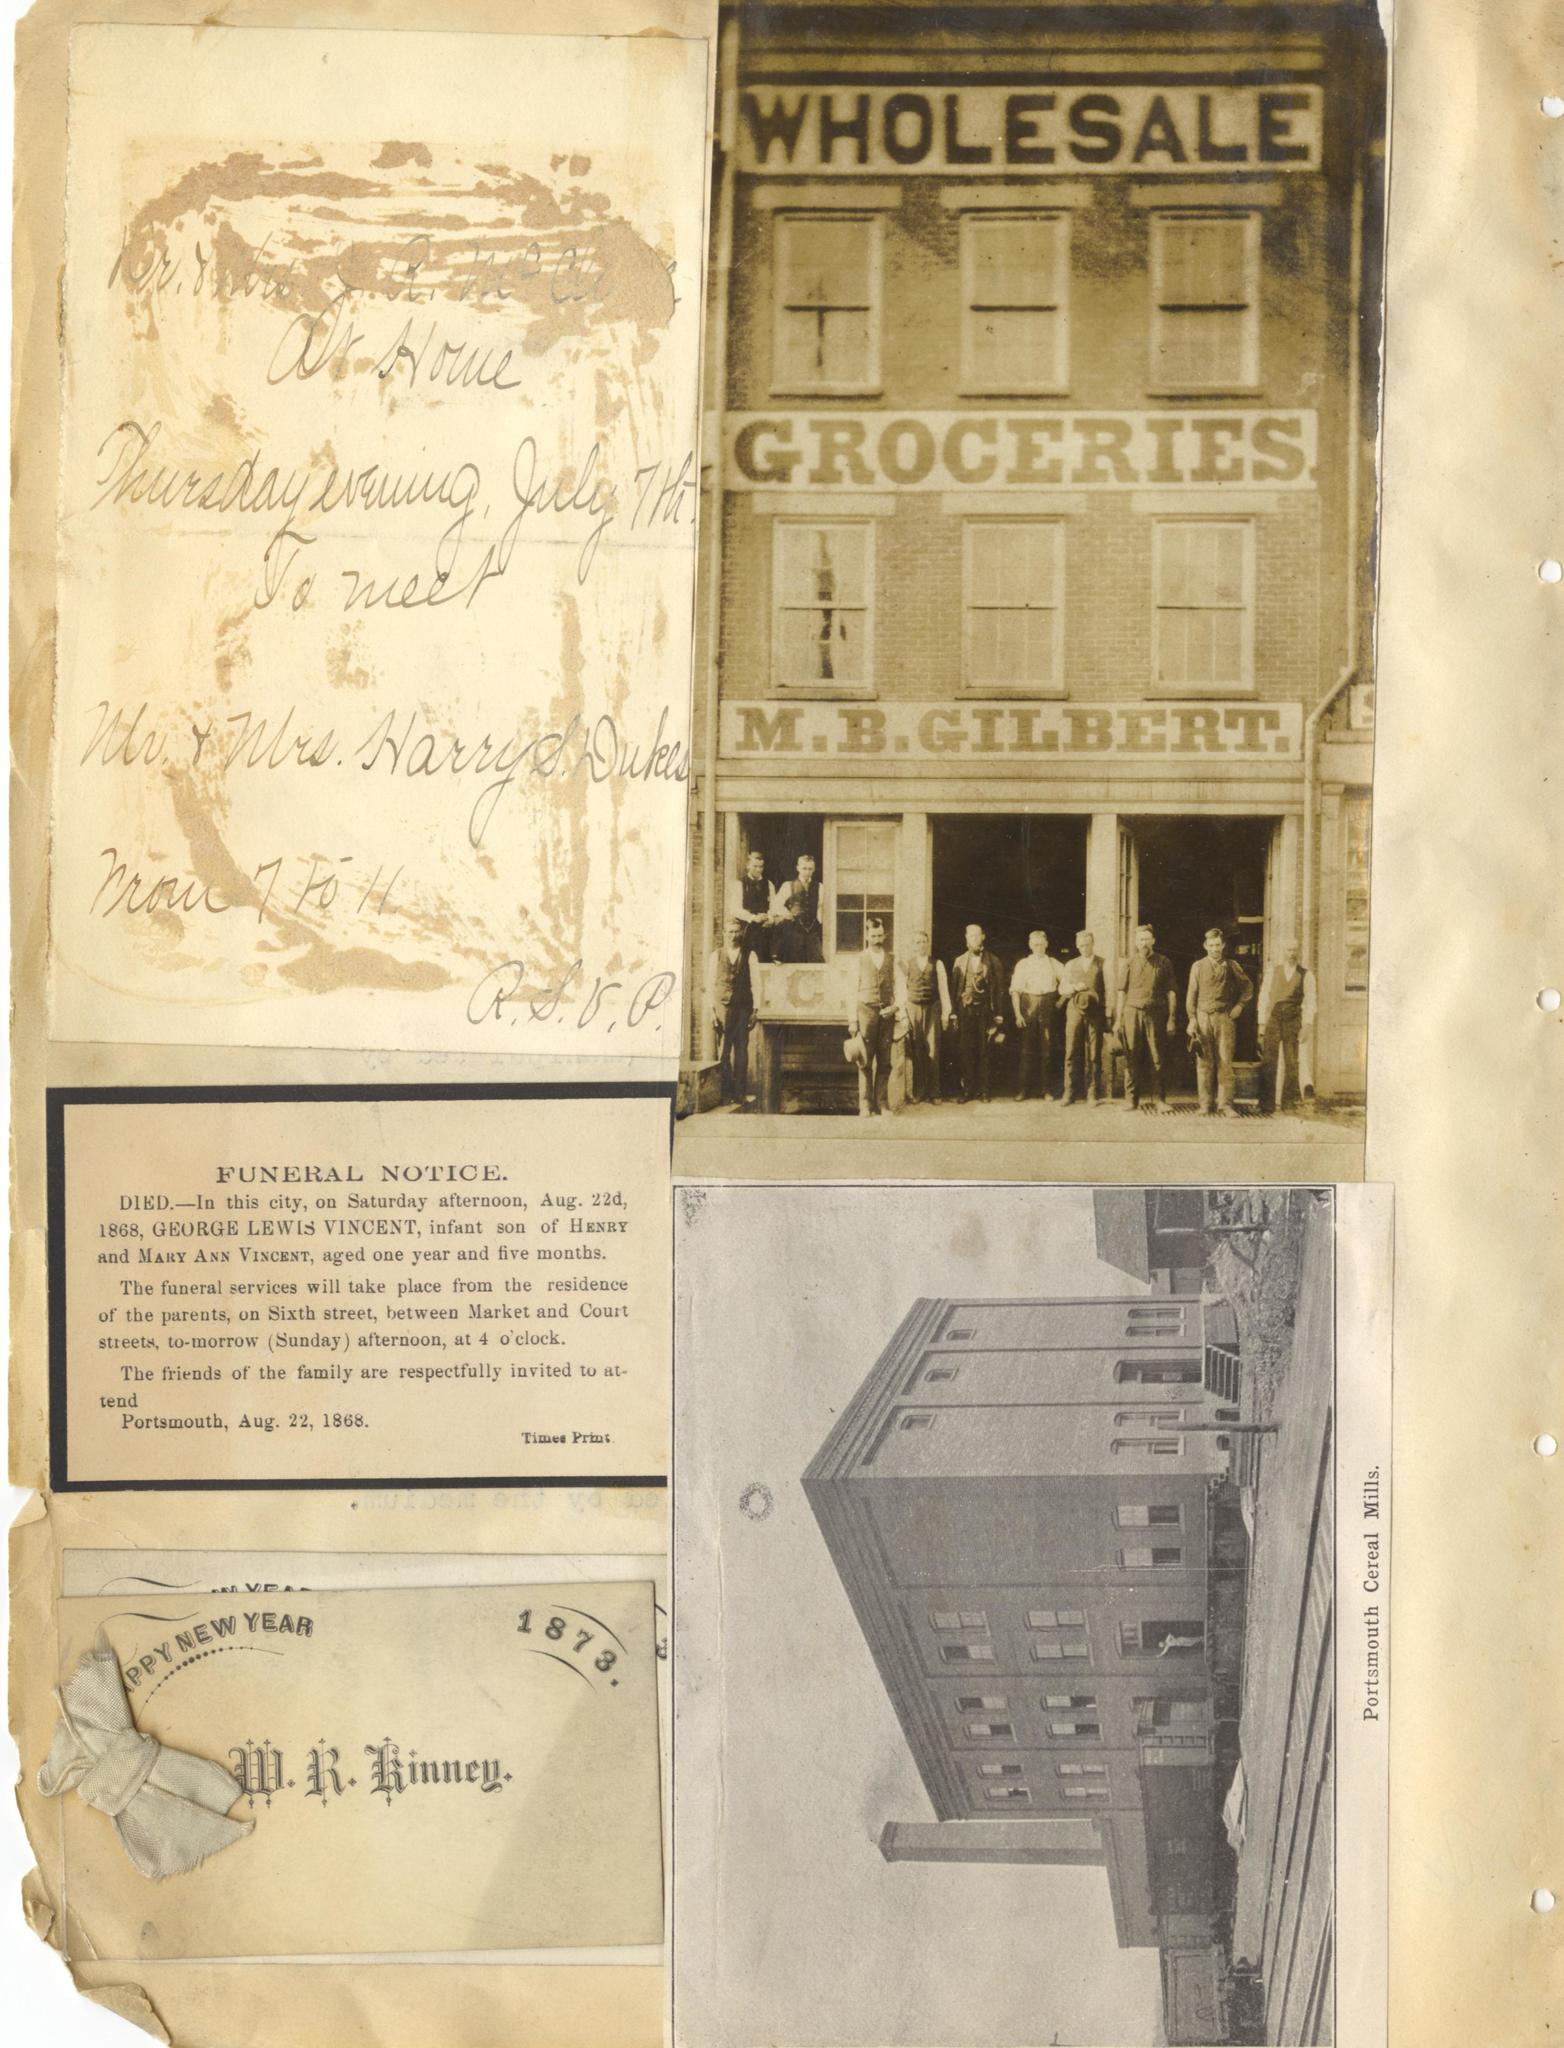 Mr. & Mrs. J. R. Mc
At Home
Thursday evening, July 7th.
To meet
Mr. & Mrs. Harry S. Dukes
From 7 to 11.
R. S. V. P.
WHOLESALE
GROCERIES.
M. B. GILBERT.
C
FUNERAL NOTICE.
DIED.—In this city, on Saturday afternoon, Aug. 22d,
1868, GEORGE LEWIS VINCENT, infant son of HENRY
and MARY ANN VINCENT, aged one year and five months.
The funeral services will take place from the residence
of the parents, on Sixth street, between Market and Court
streets, to-morrow (Sunday) afternoon, at 4 o'clock.
The friends of the family are respectfully invited to at-
tend
Portsmouth, Aug. 22, 1868.
Times Print.
by the medium.
W YEAR
APPY NEW YEAR
1873.
W. R. Kinney.
Portsmouth Cereal Mills.